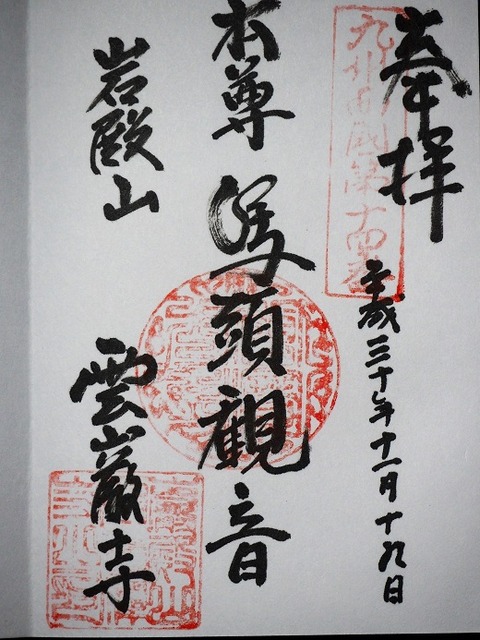 奉拝
九州西国第十四番
平成三十年十一月十九日
本尊 馬頭観音
岩殿山
雲巌寺